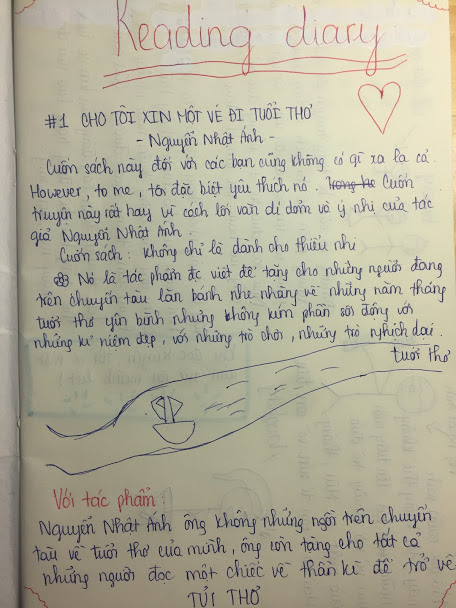 Reading diary
#1 CHO TÔI XIN MỘT VÉ ĐI TUỔI THƠ
- Nguyễn Nhật Ánh -
Cuốn sách này đối với các bạn cũng không có gì xa lạ cả.
However, to me, tôi đặc biệt yêu thích nó. Cuốn
truyện này rất hay vì cách lối văn dí dỏm và ý nhị của tác
giả Nguyễn Nhật Ánh.
Cuốn sách: không chỉ là dành cho thiếu nhi
Nó là tác phẩm đc viết để tặng cho những người đang
trên chuyến tàu lăn bánh nhẹ nhàng về những năm tháng
tuổi thơ yên bình nhưng không kém phần sôi động với
những kỉ niệm đẹp, với những trò chơi, những trò nghịch dại.
tuổi thơ
Với tác phẩm:
Nguyễn Nhật Ánh ông không những ngồi trên chuyến
tàu về tuổi thơ của mình, ông còn tặng cho tất cả
những người đọc một chiếc vé thần kì để trở về
TUỔI THƠ